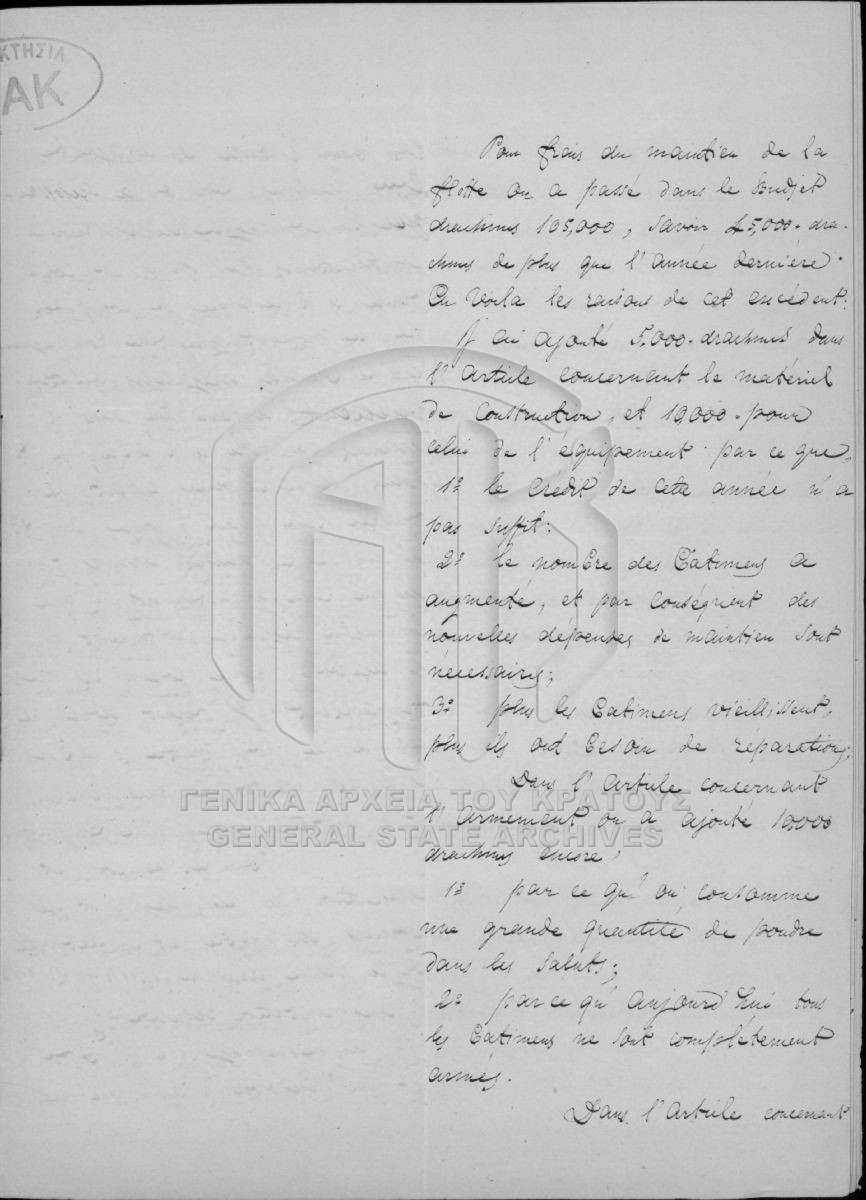 ΚΤΗΣΙΑ
ΑΚ
Pour frais du maintien de la
flotte on a passé dans le Budjet
drachmes 105,000, savoir 25,000 dra-
chmes de plus que l'année dernière.
En voila les raisons de cet excédent:
J'ai ajouté 5.000 drachmes dans
l'Article concernant le matériel
de construction, et 10,000 pour
celui de l'équipement par ce que,
1º le crédit de cette année n'a
pas suffit;
2º le nombre des Batimens a
augmenté, et par conséquent des
nouvelles dépenses de maintien sont
nécessaires;
3º plus les Batimens vieillissent,
plus ils ont besoin de réparations;
Dans l'Article concernant
l'Armement on a ajouté 10,000
drachmes encore,
1º par ce qu'on consomme
une grande quantité de poudre
dans les saluts;
2º par ce qu'aujourd'hui tous
les Batimens ne sont complètement
armés.
Dans l'Article concernant
ΓΕΝΙΚΑ ΑΡΧΕΙΑ ΤΟΥ ΚΡΑΤΟΥΣ
GENERAL STATE ARCHIVES